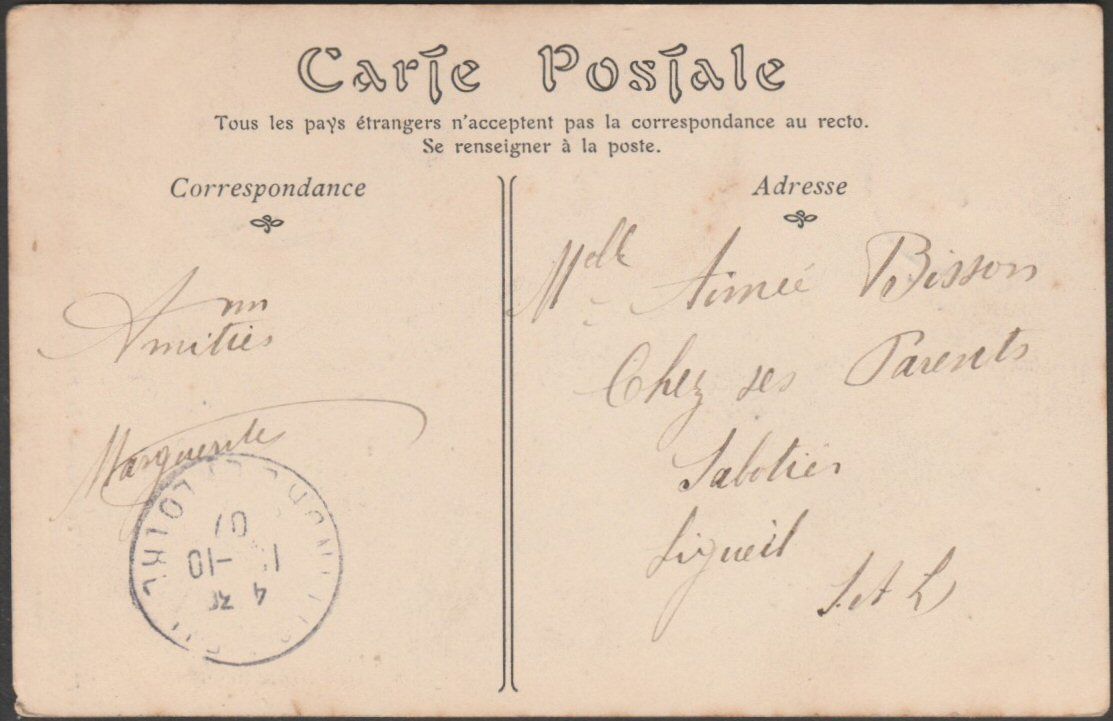 Carte Postale
Tous les pays étrangers n'acceptent pas la correspondance au recto.
Se renseigner à la poste.
Correspondance
Adresse
Amitiés
Marguerite
Melle Aimée Bisson
Chez ses Parents
Sabotier
Ligueil
I. et L
4
1 -10
07
LOIRE